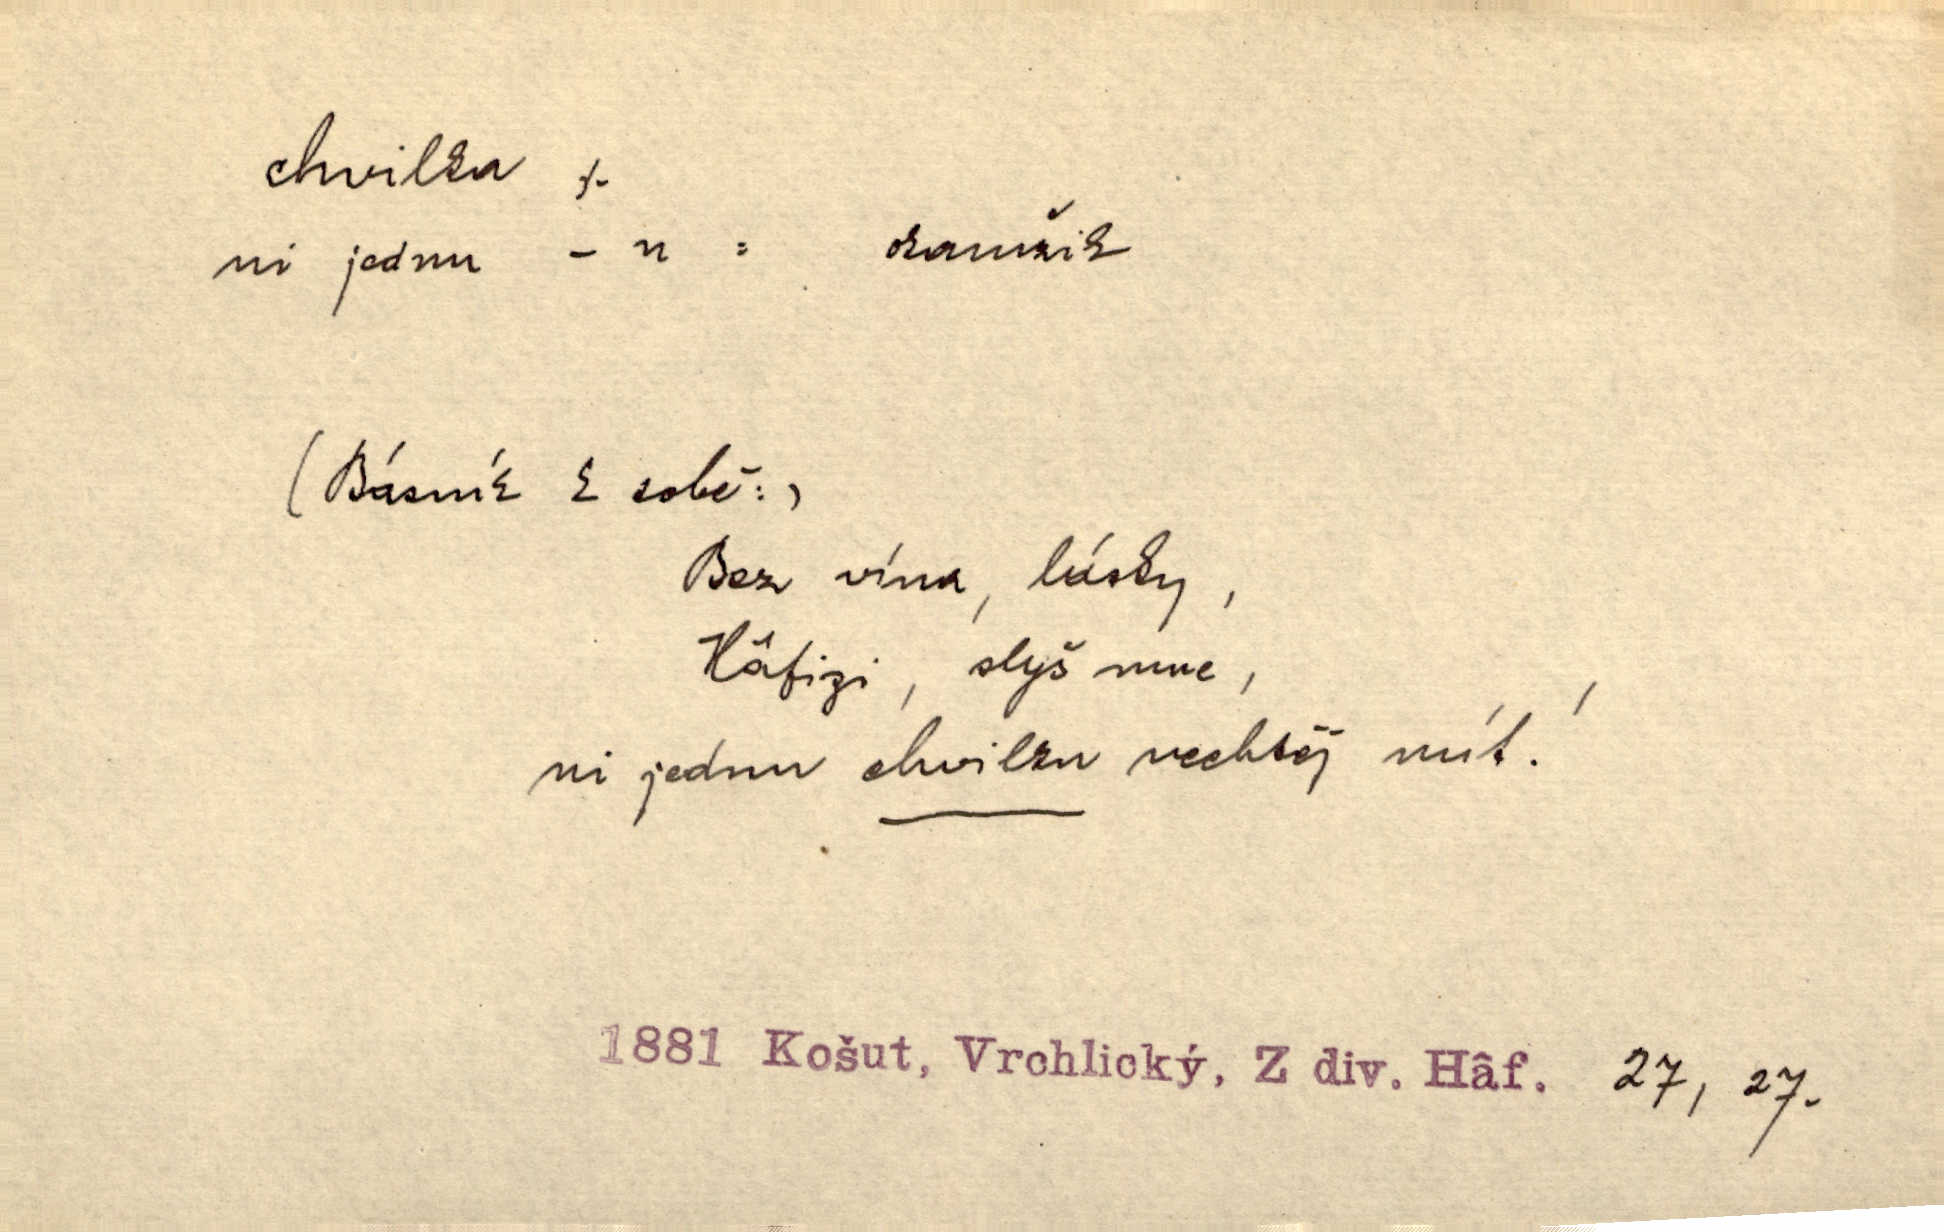 chvilka f.
ni jednu - u = okamžik
(Básník k sobě:)
Bez vína, lásky,
Hâfizi, slyš mne,
ni jednu chvilku nechtěj mít!
1881 Košut, Vrchlický, Z div. Hâf. 27, 27.